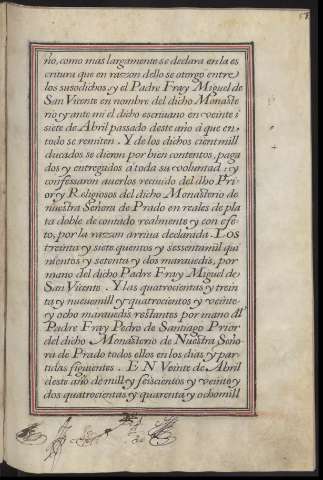 ño, como más largamente se declara en la es
critura que en razzon dello se otorgo entre
los susodichos y el Padre Fray Miguel de
San Vicente en nombre del dicho Monaste
rio y ante mi el dicho escriuano en veinte y
siete de Abril passado deste año à que en
todo se remiten. Y de los dichos cient mill
ducados se dieron por bien contentos, paga
dos y entregados à toda su voluntad, y
confessaron auerlos reciuido del dho Pri
or y Religiosos del dicho Monasterio de
nuestra Señora de Prado en reales de pla
ta doble de contado realmente y con efe
to, por la razzon arriua declarada. Los
treinta y siete quentos y sessentamill qui
nientos y setenta y dos marauedis, por
mano del dicho Padre Fray Miguel de
San Vicente. Y las quatrocientas y trein
ta y nueuemill y quatrocientos y veinte
y ocho marauedis restantes por mano dl
Padre Fray Pedro de Santiago Prior
del dicho Monasterio de Nuestra Seño
ra de Prado todos ellos en los dias y par
tidas siguientes. EN Veinte de Abril
deste año de mill y seiscientos y veinte y
dos quatrocientas y quarenta y ochomill